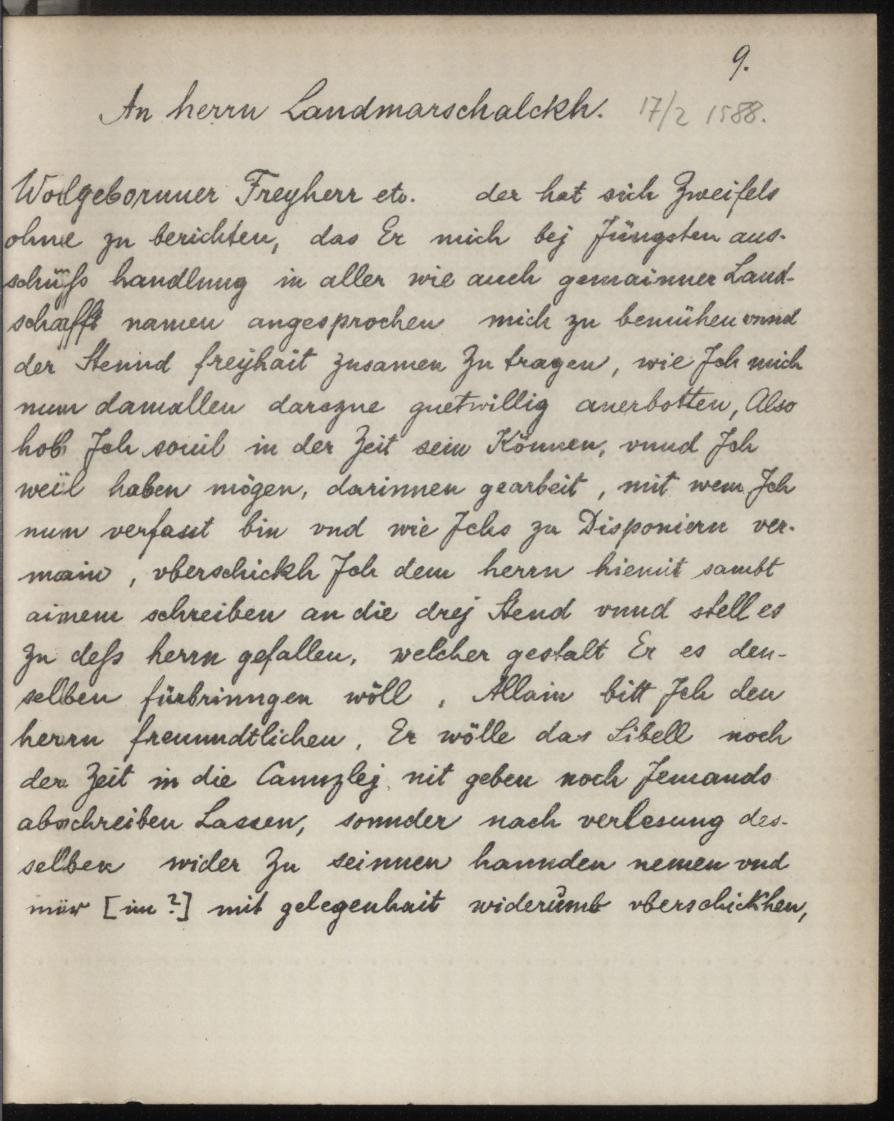 9.
An herrn Landmarschalckh. 17/2 1588.
Wolgebornner Freyherr etc. der hat sich Zweifels
ohne zu berichten, das Er mich bej Jüngsten aus-
schuß handlung in aller wie auch gemainner Land-
schafft namen angesprochen mich zu bemühen vnnd
der Stennd freyhait zusamen Zu tragen, wie Jch mich
nun damallen darczue guetwillig anerbotten, Also
hab Jch souil in der Zeit sein Können, vnnd Jch
weil haben mögen, darinnen gearbeit, mit wem Jch
nun verfasst bin vnd wie Jchs zu Disponiern ver-
main, vberschickh Jch dem herrn hiemit sambt
ainem schreiben an die drej Stend vnnd stell es
Zu deß herrn gefallen, welcher gestalt Er es den-
selben fürbrinngen wöll, Allain bitt Jch den
herrn freunndtlichen, Er wölle das Libell noch
der Zeit in die Canzlej nit geben noch Jemands
abschreiben Lassen, sonnder nach verlesung des-
selben wider Zu seinnen hannden nemen vnd
mier [im ?] mit gelegenhait widerumb vberschickhen,